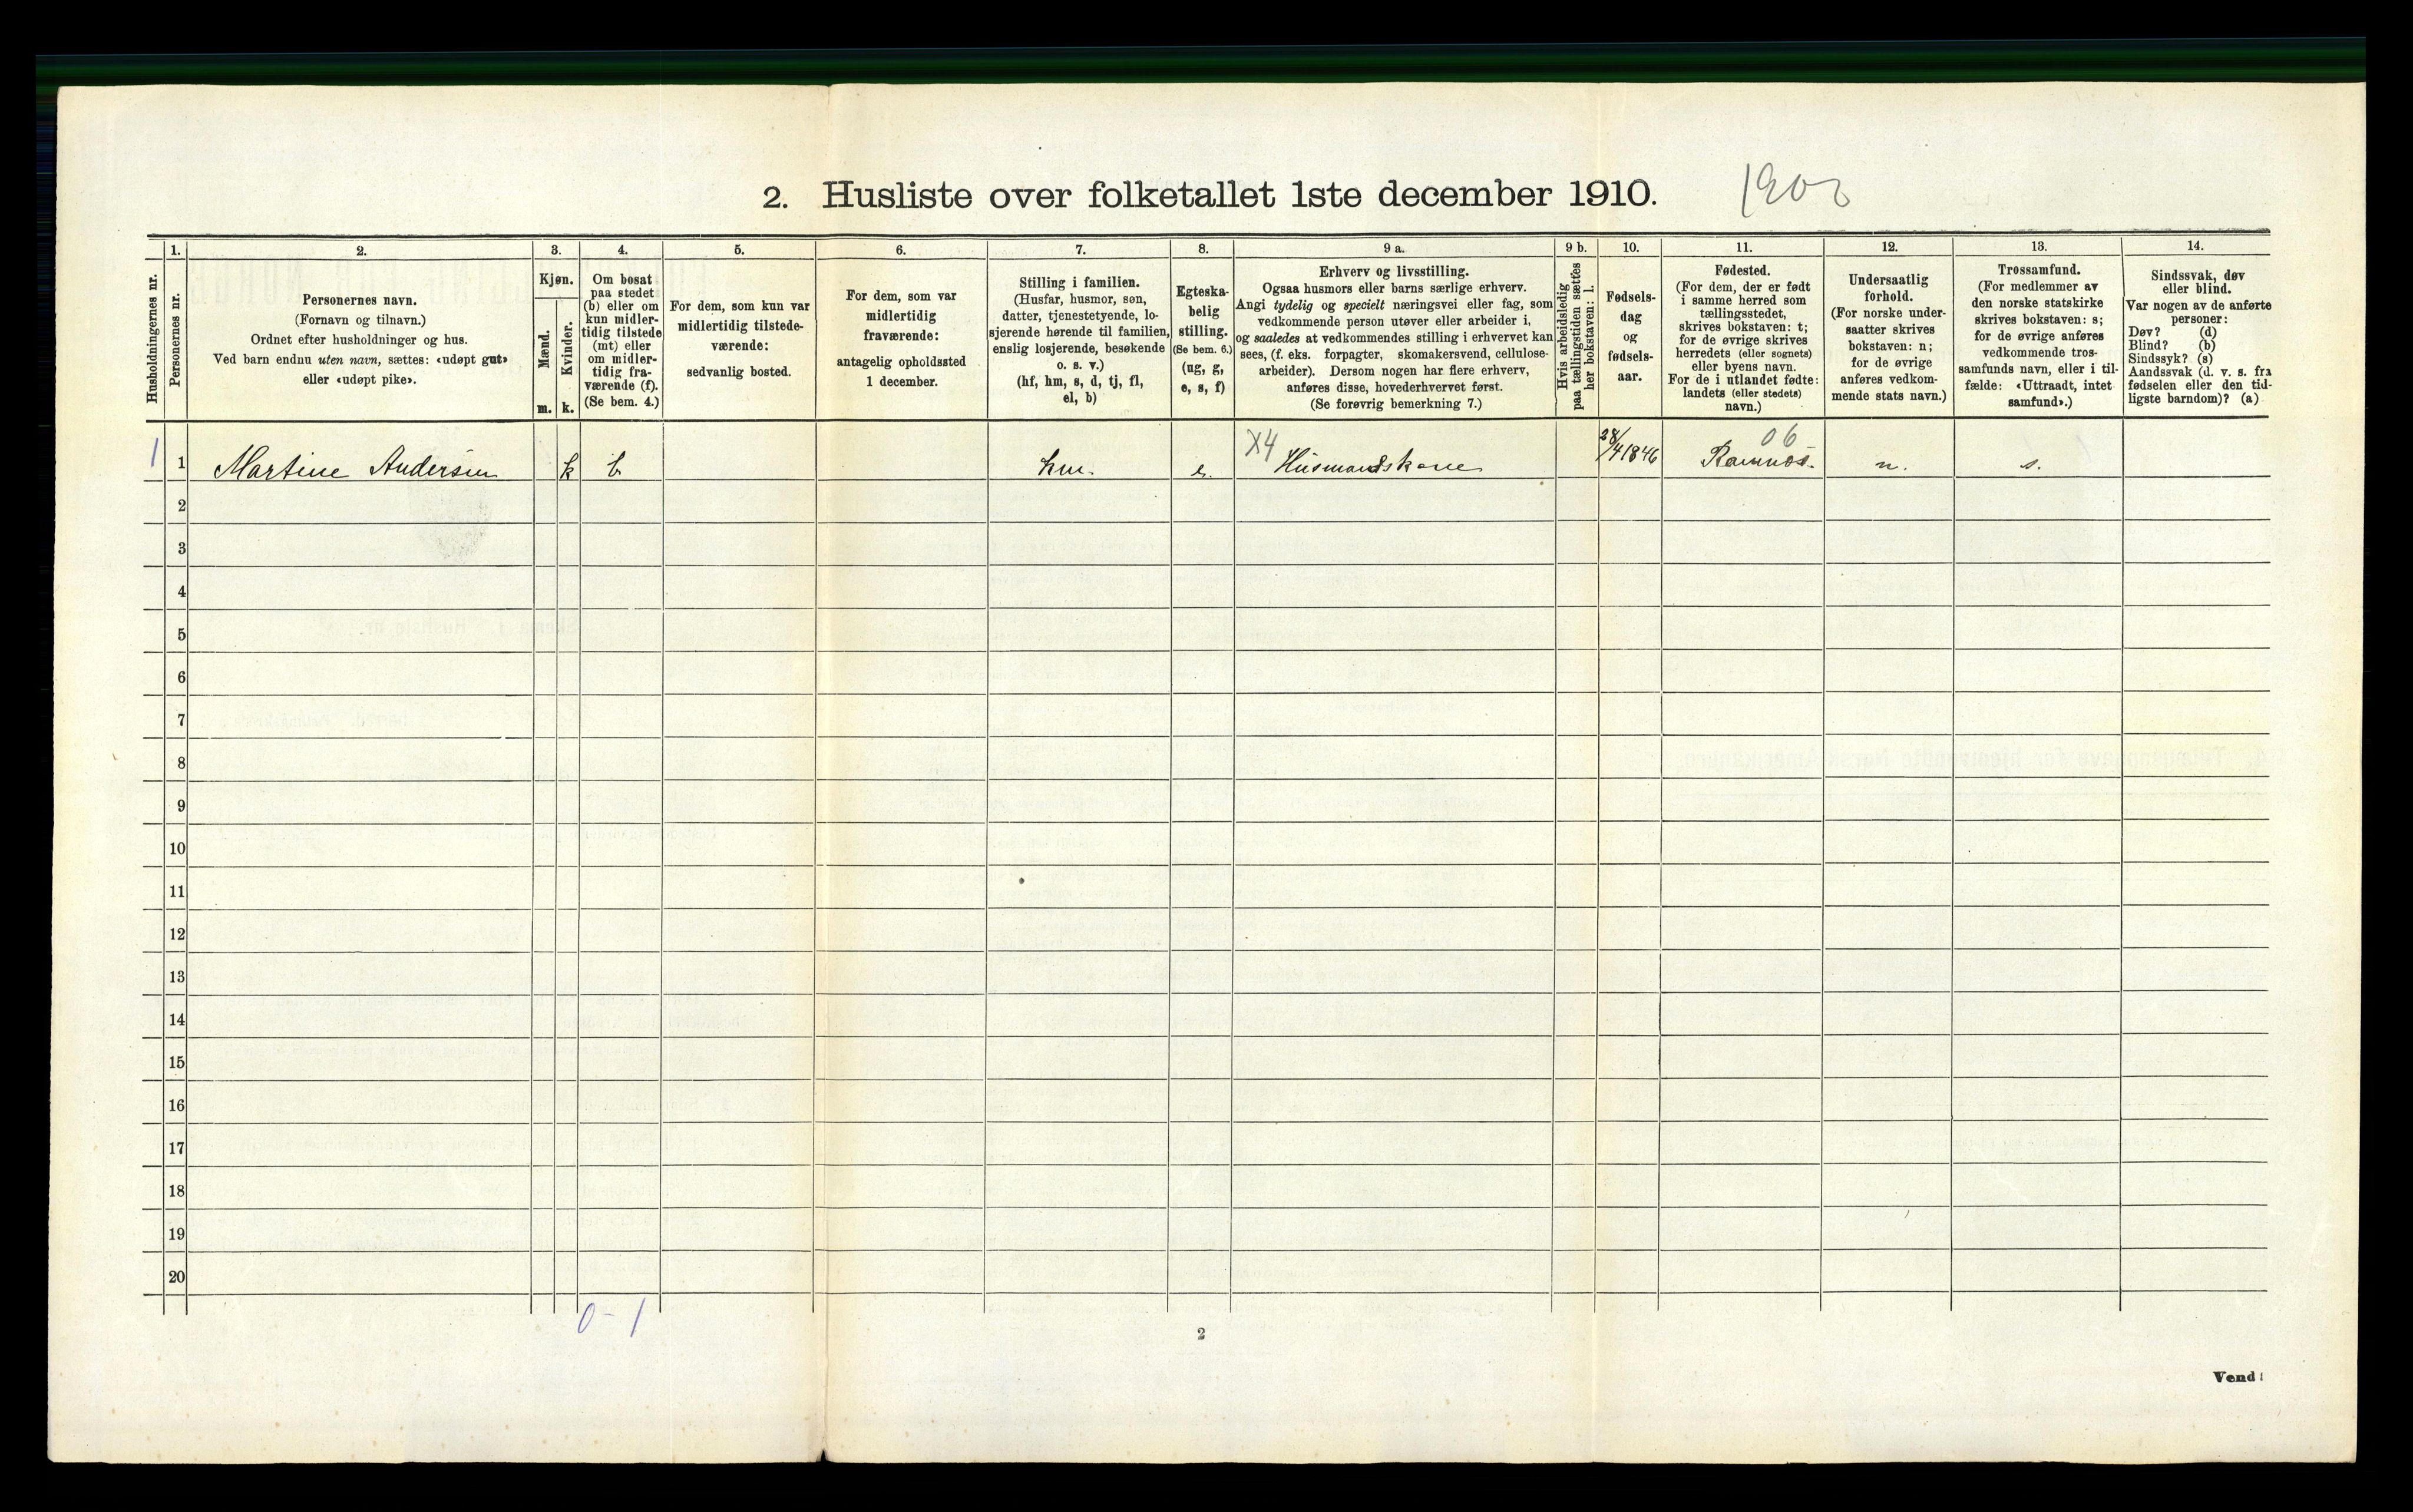 2. Husliste over folketallet 1ste december 1910.
Husholdningernes nr.
1.
Personernes nr.
2.
Personernes navn.
(Fornavn og tilnavn.)
Ordnet efter husholdninger og hus.
Ved barn endnu uten navn, sættes: «udøpt gut»
eller «udøpt pike».
3.
Kjøn.
Mænd.
Kvinder.
m. k.
4.
Om bosat
paa stedet
(b) eller om
kun midler-
tidig tilstede
(mt) eller
om midler-
tidig fra-
værende (f).
(Se bem. 4.)
5.
For dem, som kun var
midlertidig tilstede-
værende:
sedvanlig bosted.
6.
For dem, som var
midlertidig
fraværende:
antagelig opholdssted
1 december.
7.
Stilling i familien.
(Husfar, husmor, søn,
datter, tjenestetyende, lo-
sjerende hørende til familien,
enslig losjerende, besøkende
o. s. v.)
(hf, hm, s, d, tj, fl,
el, b)
8.
Egteska-
belig
stilling.
(Se bem. 6.)
(ug, g,
e, s, f)
9 a.
Erhverv og livsstilling.
Ogsaa husmors eller barns særlige erhverv.
Angi tydelig og specielt næringsvei eller fag, som
vedkommende person utøver eller arbeider i,
og saaledes at vedkommendes stilling i erhvervet kan
sees, (f. eks. forpagter, skomakersvend, cellulose-
arbeider). Dersom nogen har flere erhverv,
anføres disse, hovederhvervet først.
(Se forøvrig bemerkning 7.)
9 b.
Hvis arbeidsledig
paa tællingstiden sættes
her bokstaven: l.
10.
Fødsels-
dag
og
fødsels-
aar.
11.
Fødested.
(For dem, der er født
i samme herred som
tællingsstedet,
skrives bokstaven: t;
for de øvrige skrives
herredets (eller sognets)
eller byens navn.
For de i utlandet fødte:
landets (eller stedets)
navn.)
12.
Undersaatlig
forhold.
(For norske under-
saatter skrives
bokstaven: n;
for de øvrige
anføres vedkom-
mende stats navn.)
13.
Trossamfund.
(For medlemmer av
den norske statskirke
skrives bokstaven: s;
for de øvrige anføres
vedkommende tros-
samfunds navn, eller i til-
fælde: «Uttraadt, intet
samfund».)
14.
Sindssvak, døv
eller blind.
Var nogen av de anførte
personer:
Døv? (d)
Blind? (b)
Sindssyk? (s)
Aandssvak (d. v. s. fra
fødselen eller den tid-
ligste barndom)? (a)
X4 06
1 1 Martine Andersen k b. hm. e. Husmandskone 28/4 1846 Ramnes. n. s.
2
3
4
5
6
7
8
9
10
11
12
13
14
15
16
17
18
19
20
0-1
2
Vend!